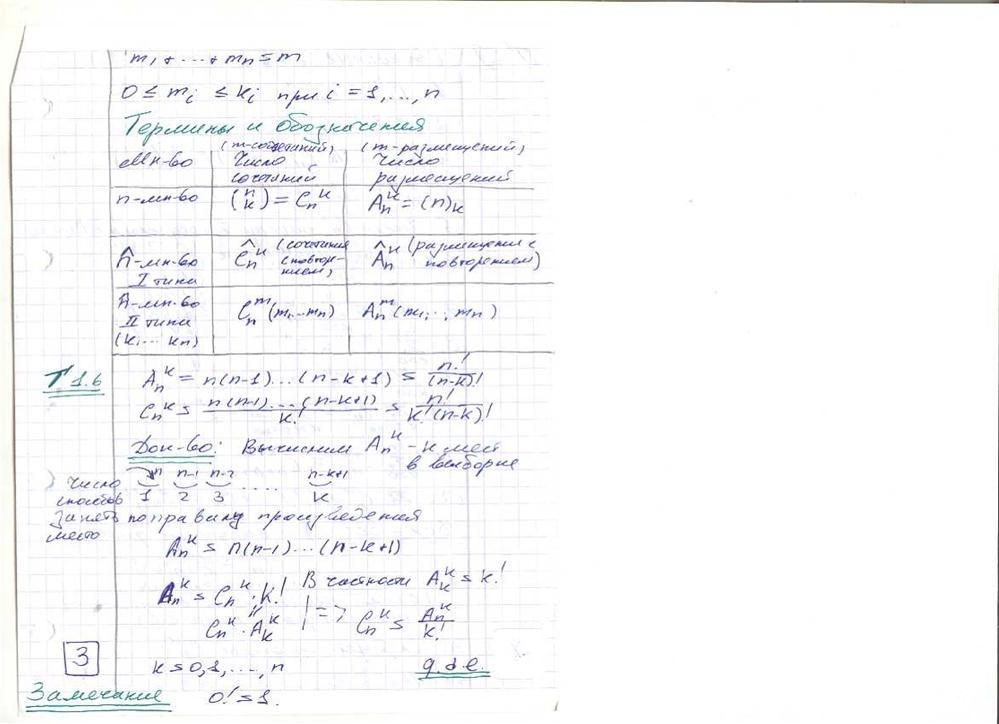 m₁ + ... + mₙ = m
0 ≤ mᵢ ≤ kᵢ при i = 1, ..., n
Термины и обозначения
Мн-во | (m-сочетаний) Число сочетаний | (m-размещений) Число размещений
n-мн-во | (n k) = Cₙᵏ | Aₙᵏ = (n)ₖ
n̂-мн-во I типа | Ĉₙᵏ (сочетания с повторением) | Âₙᵏ (размещения с повторением)
n̂-мн-во II типа (k₁ ... kₙ) | Cₙᵐ (m₁ ... mₙ) | Aₙᵐ (m₁, ., mₙ)
T 1.6 Aₙᵏ = n(n-1)...(n-k+1) = n!/(n-k)!
Cₙᵏ = n(n-1)...(n-k+1)/k! = n!/k!(n-k)!
Док-во: Вычислим Aₙᵏ - k мест
в выборке
Число способов занять место
n n-1 n-2 n-k+1
1 2 3 .... k
по правилу произведения
Aₙᵏ = n(n-1)...(n-k+1)
Aₙᵏ = Cₙᵏ · k! В частности Aₖᵏ = k!
"
Cₙᵏ · Aₖᵏ | => Cₙᵏ = Aₙᵏ/k!
3
k = 0, 1, ..., n q.d.e.
Замечание 0! = 1.